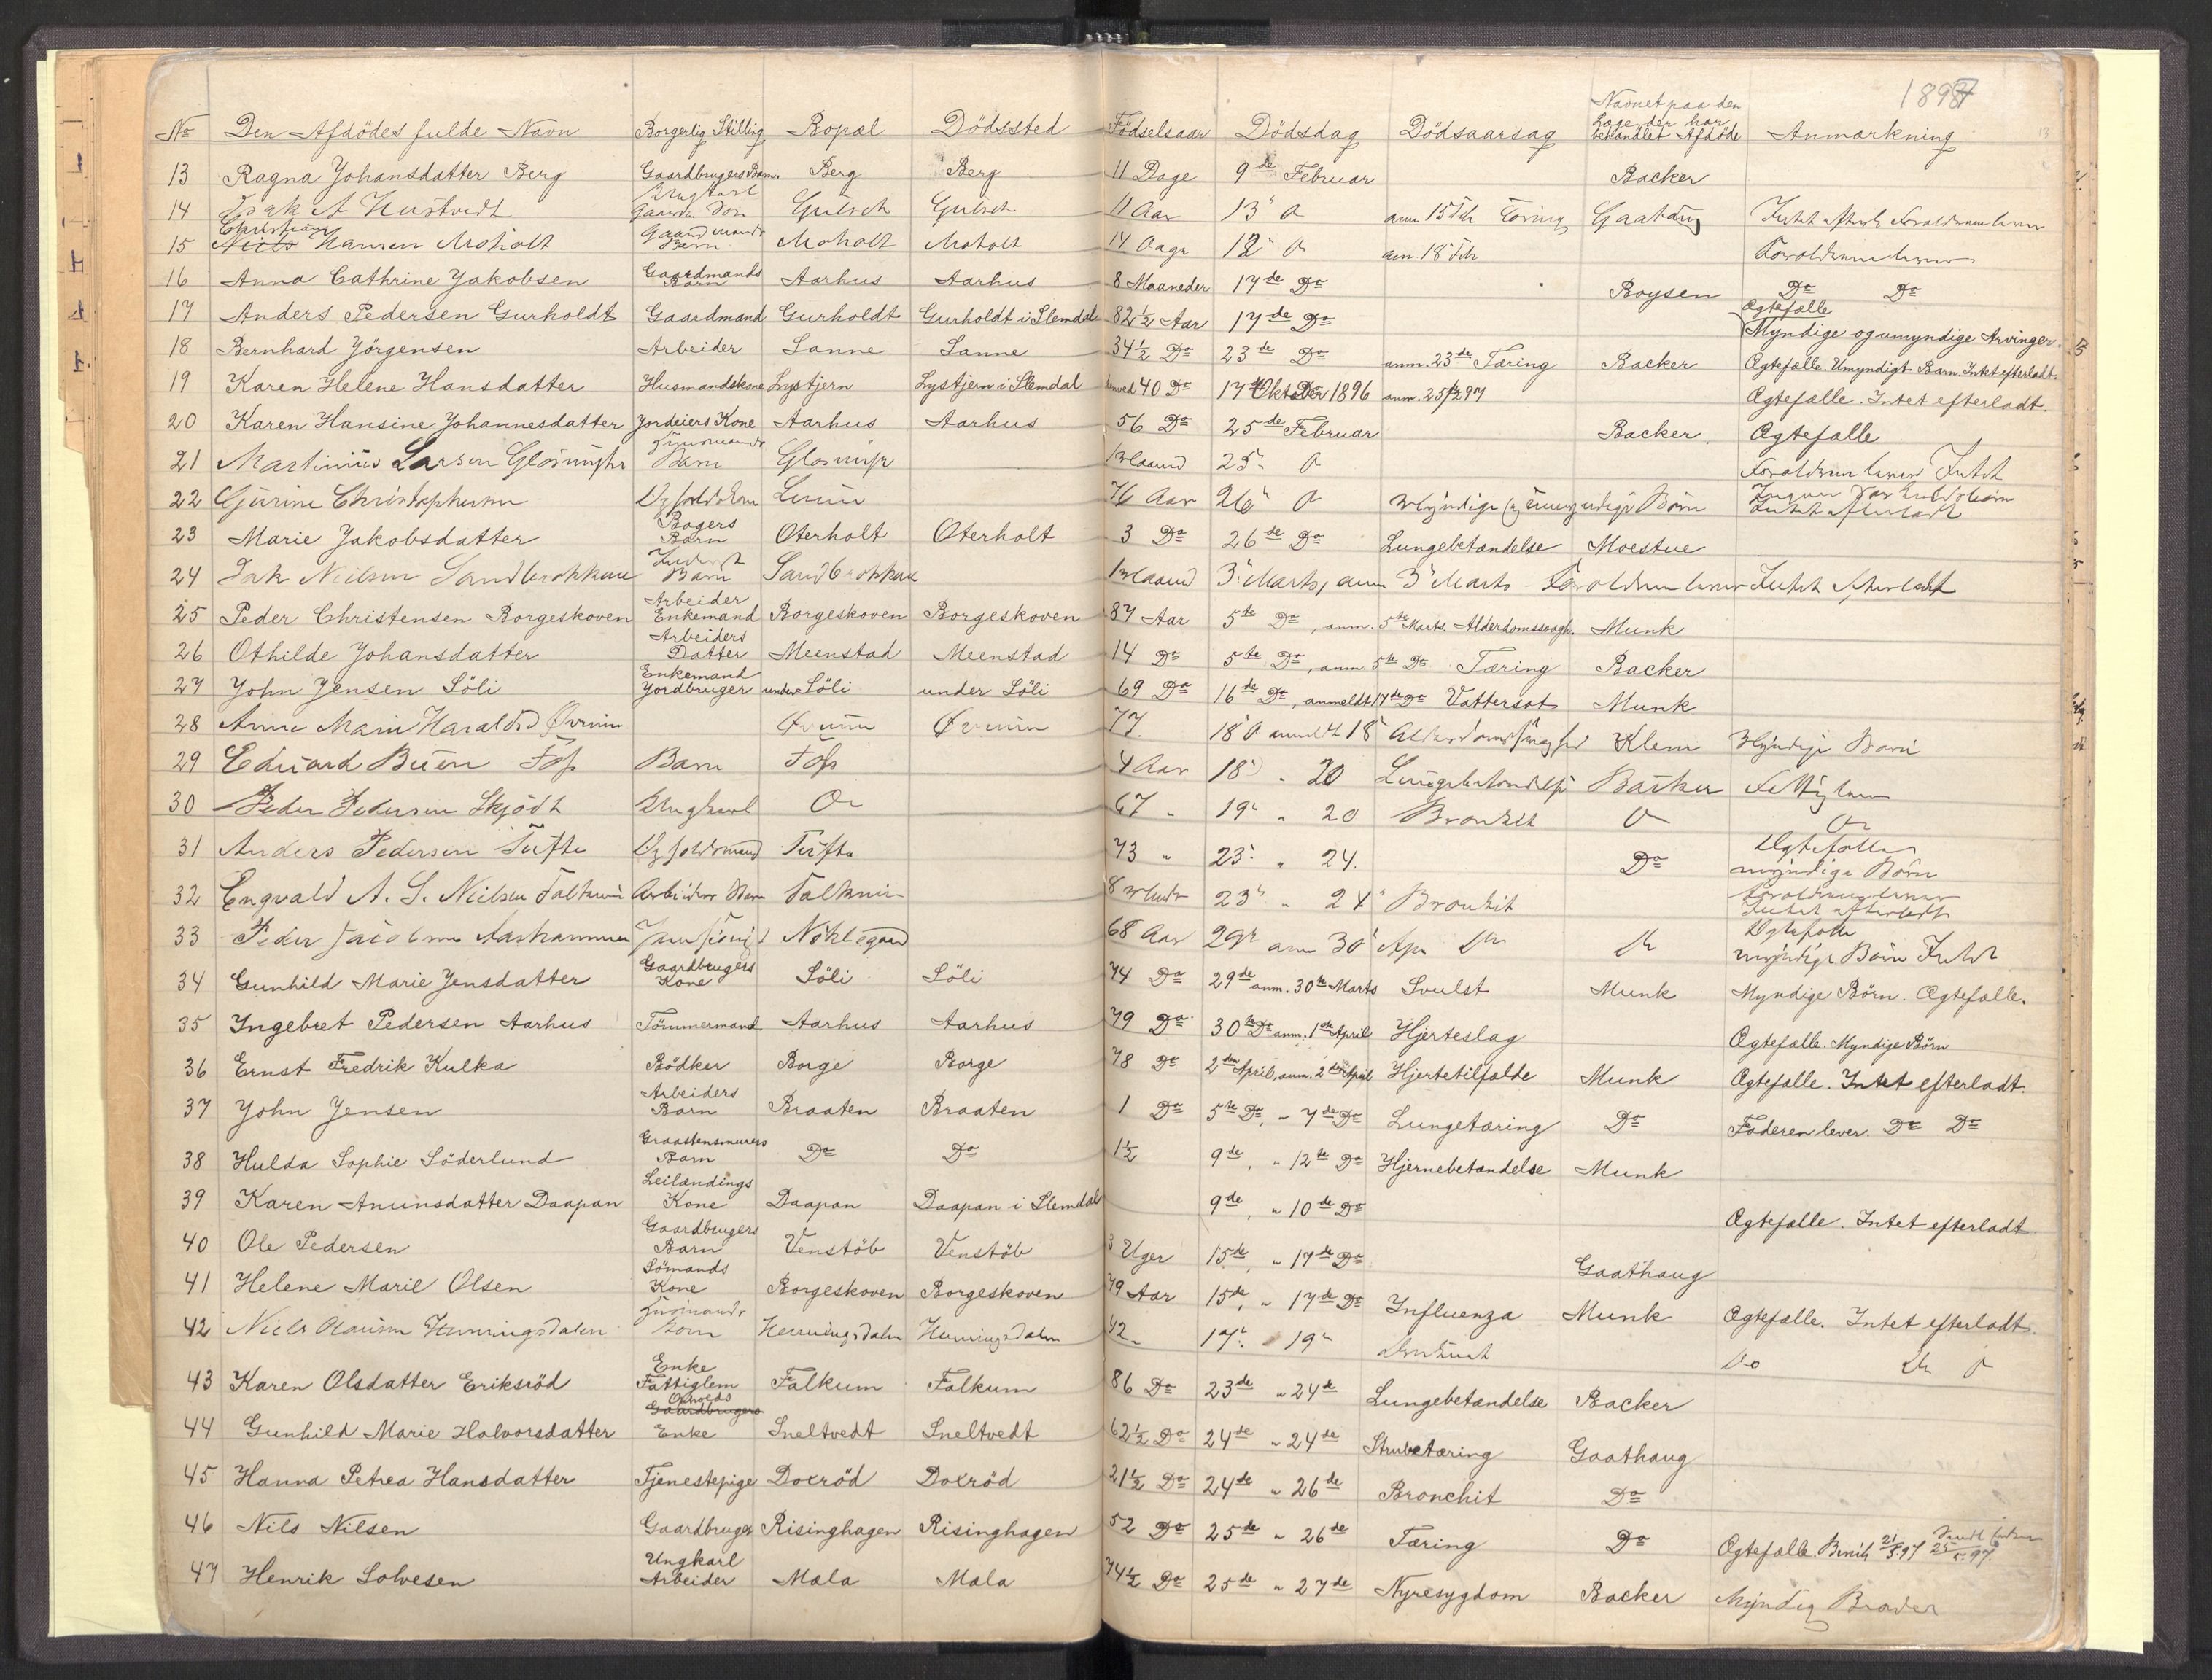 1897
13
Navnet paa den
Læge der har
No Den Afdödes fulde Navn Borgerlig Stilling Bopæl Dödssted Födselsaar Dödsdag Dödsaarsag behandlet Afdöde Anmærkning
13 Ragna Johansdatter Berg Gaardbrugers Barn. Berg Berg 11 Dage 9de Februar Backer
14 Isak A Hustvedt Gaardm Sön Gulseth Gulseth 11 Aar 13' Do anm 15 Feb Tæring Gaathaug Intet efterl Forældrene lever
Christian
15 Niels Hansen Moholt Gaardmands Barn Moholt Moholt 14 Dage 12' Do anm. 18' Feb Forældrene lever
16 Anna Cathrine Jakobsen Gaardmands Barn Aarhus Aarhus 8 Maaneder 17de Do Boysen Do Do
17 Anders Pedersen Gurholdt Gaardmand Gurholdt Gurholdt i Slemdal 82½ Aar 17de Do Ægtefælle Myndige og umyndige Arvinger.
18 Bernhard Jörgensen Arbeider Sanne Sanne 34½ Do 23de Do anm. 23de Tæring Backer Ægtefælle. Umyndigt Barn. Intet efterladt.
19 Karen Helene Hansdatter Husmandskone Lystjern Lystjern i Slemdal 40 Do 17de Oktober 1896 anm. 25/2 97 Ægtefælle. Intet efterladt.
20 Karen Hansine Johannesdatter Jordeiers Kone Aarhus Aarhus 56 Do 25de Februar Backer. Ægtefælle
21 Martinius Larsen Glosimyhr Husmands Barn Glosimyr 1 Maaned 25' Do Forældrene lever Intet
22 Gurine Christophersen Lunde 76 Aar 26' Do Myndige og umyndige Börn Intet efterladt
23 Marie Jakobsdatter Bagers Barn Oterholt Oterholt 3 Do 26de Do Lungebetændelse Moestue
24 Isak Nielsen Sandbrekkene Barn Sandbrekkene 1 Maaned 3' Marts, anm 3' Marts Forældrene lever Intet efterladt
25 Peder Christensen Borgeskoven Arbeider Enkemand Borgeskoven Borgeskoven 87 Aar 5te Do, anm. 5te Marts. Alderdomssvagh. Munk
26 Othilde Johansdatter Arbeiders Datter Meenstad Meenstad 14 Do 5te Do, anm. 5te Do Tæring Backer
27 John Jensen Söli Enkemand Jordbruger under Söli under Söli 69 Do 16de Do, anmeldt 17de Do Vattersot Munk
28 Anne Marie Haraldsd Övrum Övrum Övrum 77. 18' Do anmeldt 18' Alderdomssvaghed Klem Myndige Barn
29 Edvard Buer Fos Barn Fos 4 Aar 18' " 20 Lungebetændelse Backer Fattiglem
30 Peder Pedersen Skjödt Ungkarl Do 67 " 19' " 20 Bronkit Do Do
31 Anders Pedersen Tufte Ægtefælle Tufte 73 " 23' " 24. Do Ægtefælle myndige Börn
32 Engvald A. S. Nielsen Falkum Arbeiders Barn Falkum 8 Mndr 23' " 24' Bronkit Forældrene lever Intet efterladt
33 Peder Jacobsen Aarhammer Nöklegaard 68 Aar 29' anm 30' Do Ægtefælle myndige Börn Intet
34 Gunhild Marie Jensdatter Gaardbrugers Kone Söli Söli 74 Do 29de anm. 30te Marts Svulst Munk Myndige Börn. Ægtefælle.
35 Ingebret Pedersen Aarhus Tömmermand Aarhus Aarhus 79 Do 30te Do anm. 1ste April Hjerteslag Ægtefælle. Myndige Börn
36 Ernst Fredrik Kulka Bödker Borge Borge 78 Do 2den April, anm. 2den April Hjertetilfælde Munk Ægtefælle. Intet efterladt.
37 John Jensen Arbeiders Barn Braaten Braaten 1 Do 5te Do, " 7de Do Lungetæring Do Faderen lever. Do Do
38 Hulda Sophie Söderlund Graastensmurers Barn Do Do 1½ 9de, " 12te Do Hjernebetændelse Munk
39 Karen Anunsdatter Daapan Leilændings Kone Daapan Daapan i Slemdal 9de, " 10de Do Ægtefælle. Intet efterladt.
40 Ole Pedersen Gaardbrugers Barn Venstöb Venstöb 3 Uger 15de, " 17de Do Gaathaug
41 Helene Marie Olsen Sömands Kone Borgeskoven Borgeskoven 79 Aar 15de, " 17de Do Influenza Munk Ægtefælle. Intet efterladt.
42 Niels Hansen Hemmingsdalen Husmands Hemmingsdalen Hemmingsdalen 42 " 17' 19' Do Do Do
43 Karen Olsdatter Eriksröd Enke Fattiglem Falkum Falkum 86 Do 23de " 24de Lungebetændelse Backer
44 Gunhild Marie Halvorsdatter Opholds Gaardbrugers Enke Sneltvedt Sneltvedt 62½ Do 24de " 24de Strubetæring Gaathaug
45 Hanna Petrea Hansdatter Tjenestepige Doxröd Doxröd 21½ Do 24de " 26de Bronchit Do
46 Nils Nilsen Gaardbruger Risinghagen Risinghagen 52 Do 25de " 26de Tæring Do Ægtefælle. Bevilg 21/5 97 25/5 97.
47 Henrik Solvesen Ungkarl Arbeider Mæla Mæla 74½ Do 25de " 27de Nyresygdom Backer Myndig Broder